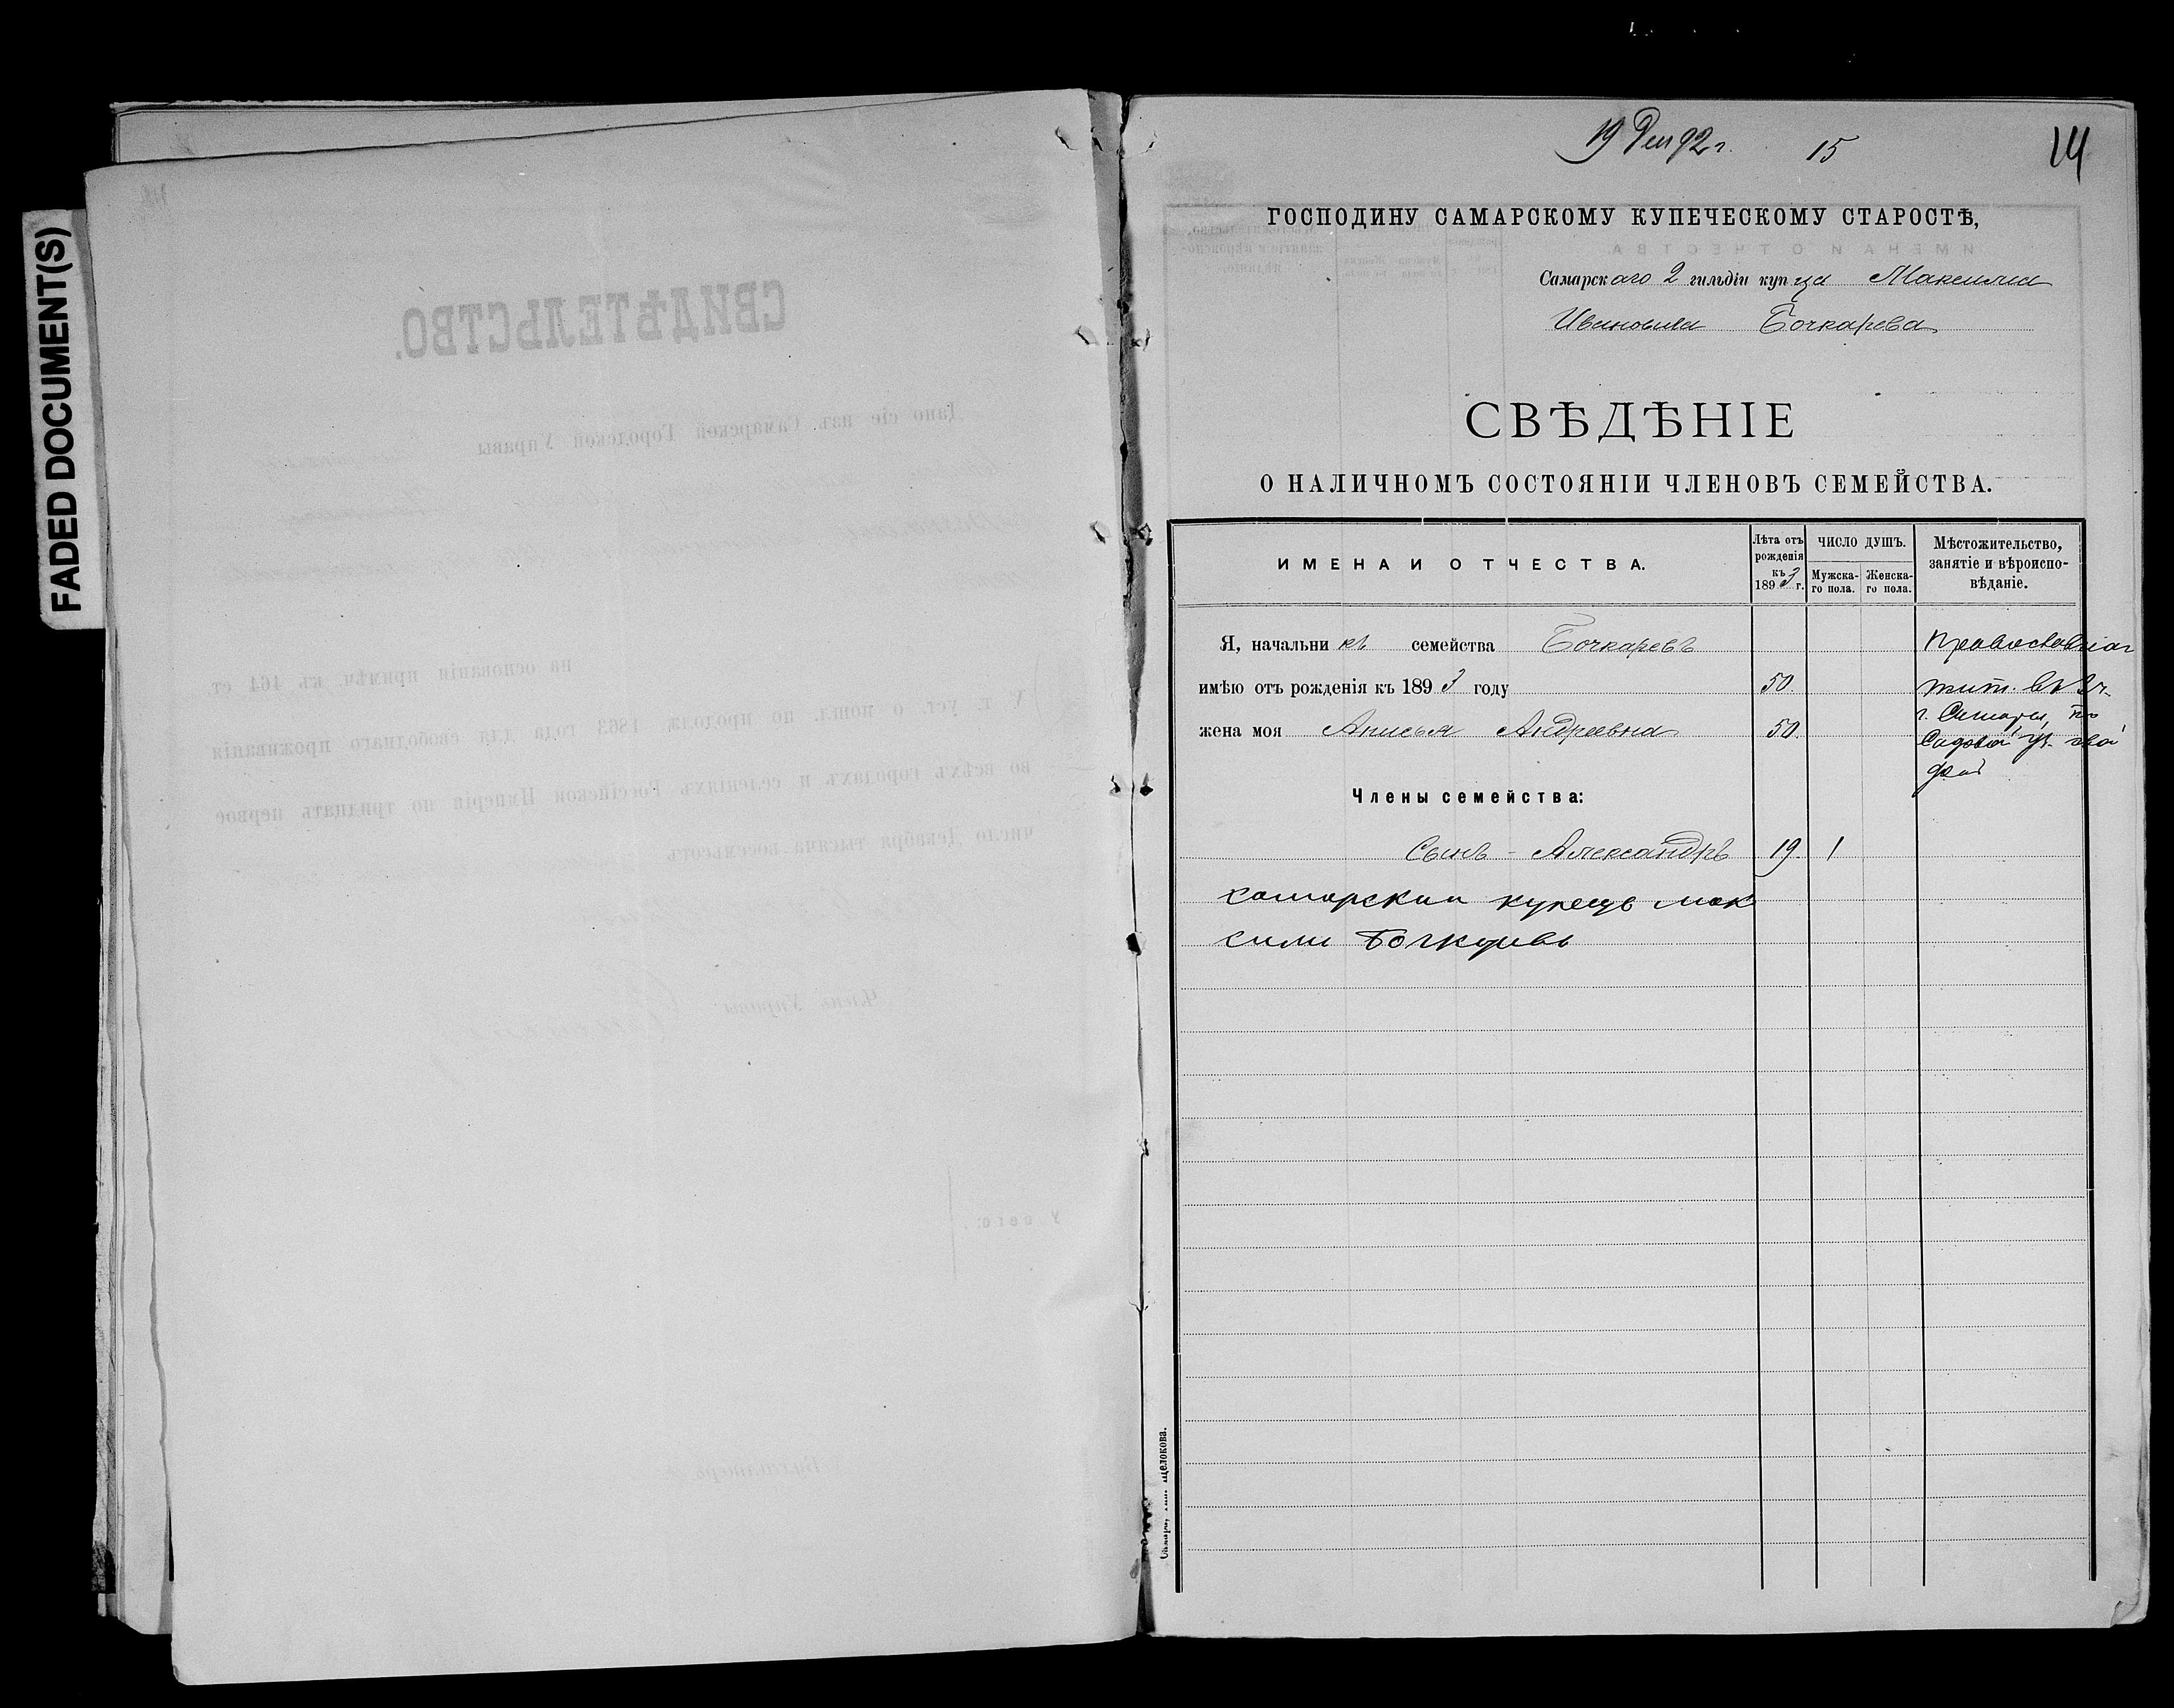 FADED DOCUMENT(S)
СВИДѢТЕЛЬСТВО.
Дано сіе изъ Самарской Городской Управы
на основаніи примѣч. къ 464 ст.
V т. уст. о пошл. по продолж. 1863 года для свободнаго проживанія
во всѣхъ городахъ и селеніяхъ Россійской Имперіи по тридцать первое
число Декабря тысяча восемьсотъ
Членъ Управы
У сего:
Бухгалтеръ
19 Дек 92 г. 15 14
ГОСПОДИНУ САМАРСКОМУ КУПЕЧЕСКОМУ СТАРОСТѢ,
Самарскаго 2 гильдіи купца Максима
Ивановича Бочкарева
СВѢДѢНІЕ
О НАЛИЧНОМЪ СОСТОЯНІИ ЧЛЕНОВЪ СЕМЕЙСТВА.
ИМЕНА И ОТЧЕСТВА.
Лѣта отъ рожденія къ 1893 г.
ЧИСЛО ДУШЪ.
Мужска-го пола.
Женска-го пола.
Мѣстожительство, занятіе и вѣроиспо-вѣданіе.
Я, начальникъ семейства Бочкаревъ Православнаг
имѣю отъ рожденія къ 1893 году 50. жит. въ
г. Самары, по
жена моя Анисья Андреевна 50.
Садовой ул.
Члены семейства:
Сынъ - Александръ 19. 1
самарскии купецъ мак
сим Бочкаревъ
Щелокова.